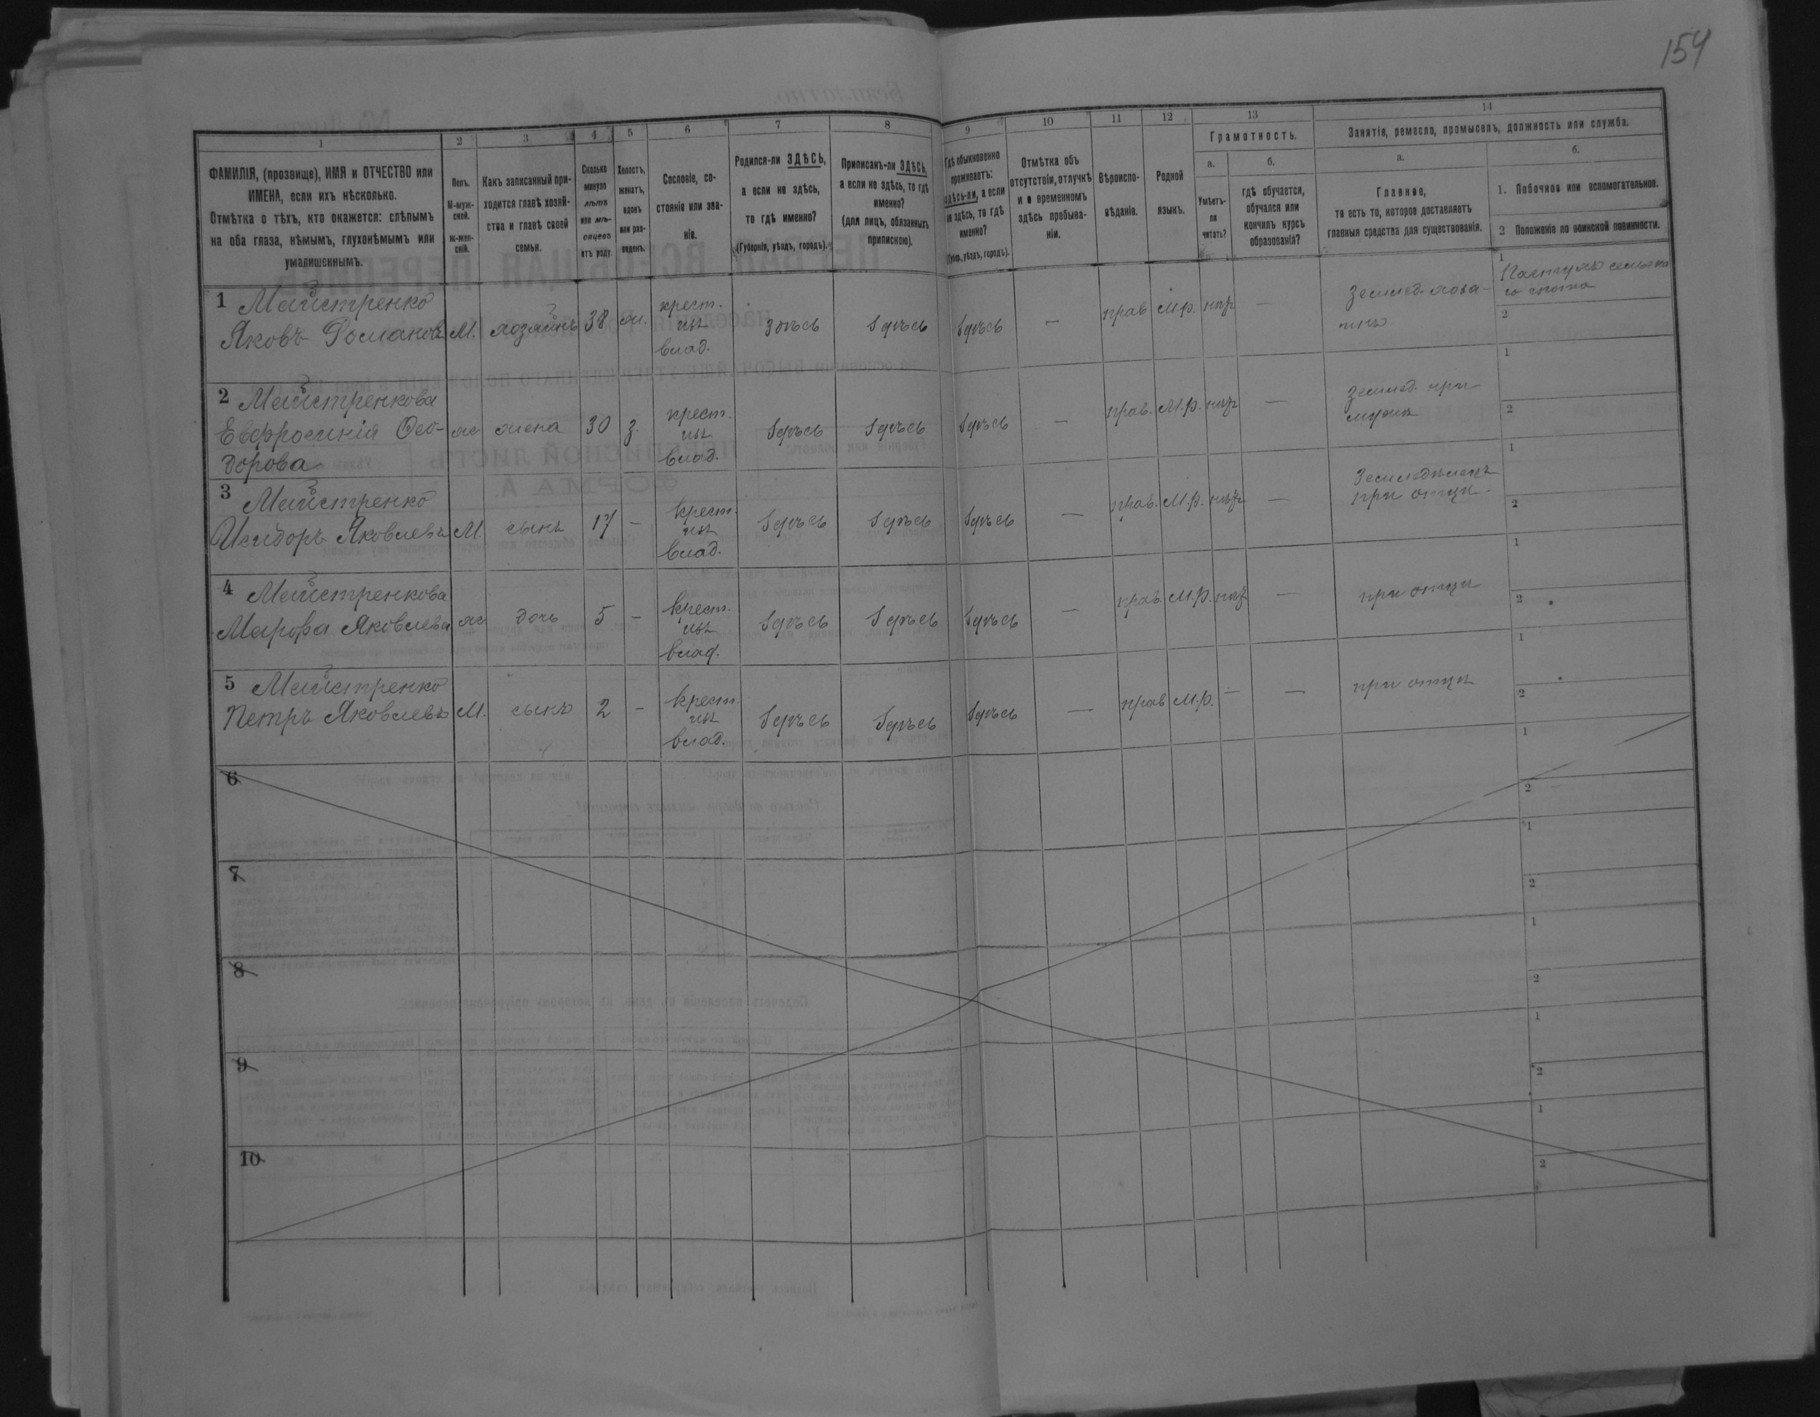 154
1
2
3
4
5
6
7
8
9
10
11
12
13
14
ФАМИЛІЯ, (прозвище), ИМЯ и ОТЧЕСТВО или
ИМЕНА, если ихъ нѣсколько.
Отмѣтка о тѣхъ, кто окажется: слѣпымъ
на оба глаза, нѣмымъ, глухонѣмымъ или
умалишеннымъ.
Полъ.
М-муж-
ской.
Ж-жен-
скій.
Какъ записанный при-
ходится главѣ хозяй-
ства и главѣ своей
семьи.
Сколько
минуло
лѣтъ
или мѣ-
сяцевъ
отъ роду.
Холостъ,
женатъ,
вдовъ
или раз-
веденъ.
Сословіе, со-
стояніе или зва-
ніе.
Родился-ли ЗДѢСЬ,
а если не здѣсь,
то гдѣ именно?
(Губернія, уѣздъ, городъ).
Приписанъ-ли ЗДѢСЬ,
а если не здѣсь, то гдѣ
именно?
(для лицъ, обязанныхъ
припискою).
Гдѣ обыкновенно
проживаетъ:
здѣсь-ли, а если
не здѣсь, то гдѣ
именно?
(Губ., уѣздъ, городъ).
Отмѣтка объ
отсутствіи, отлучкѣ
и о временномъ
здѣсь пребыва-
ніи.
Вѣроиспо-
вѣданіе.
Родной
языкъ.
Грамотность.
а.
Умѣетъ-
ли
читать?
б.
гдѣ обучается,
обучался или
кончилъ курсъ
образованія?
Занятія, ремесло, промыселъ, должность или служба.
а.
Главное,
то есть то, которое доставляетъ
главныя средства для существованія.
б.
1. Побочное или вспомогательное.
2 Положеніе по воинской повинности.
1 Майстренко
Яковъ Романовъ М. хозяинъ 38 ж. крест. изъ влад. здѣсь здѣсь здѣсь — прав М.р. нѣт — Землед. хозя-
инъ
1
2
2 Майстренкова
Евфросинія Ѳео-
дорова ж жена 30 з. крест. изъ влад. здѣсь здѣсь здѣсь — прав. М.р. нѣт — Землед. при
мужѣ
1
2
3 Майстренко
Исидоръ Яковлевъ М. сынъ 17 — крест. изъ влад. здѣсь здѣсь здѣсь — прав. М.р. нѣт — Земледѣлецъ
при отцѣ
1
2
4 Майстренкова
Марѳа Яковлева ж дочь 5 — крест. изъ влад. здѣсь здѣсь здѣсь — прав. М.р. нѣт — при отцѣ
1
2
5 Майстренко
Петръ Яковлевъ М. сынъ 2 — крест изъ влад. здѣсь здѣсь здѣсь — прав М.р. — — при отцѣ
1
2
6
1
2
7
1
2
8
1
2
9
1
2
10
1
2